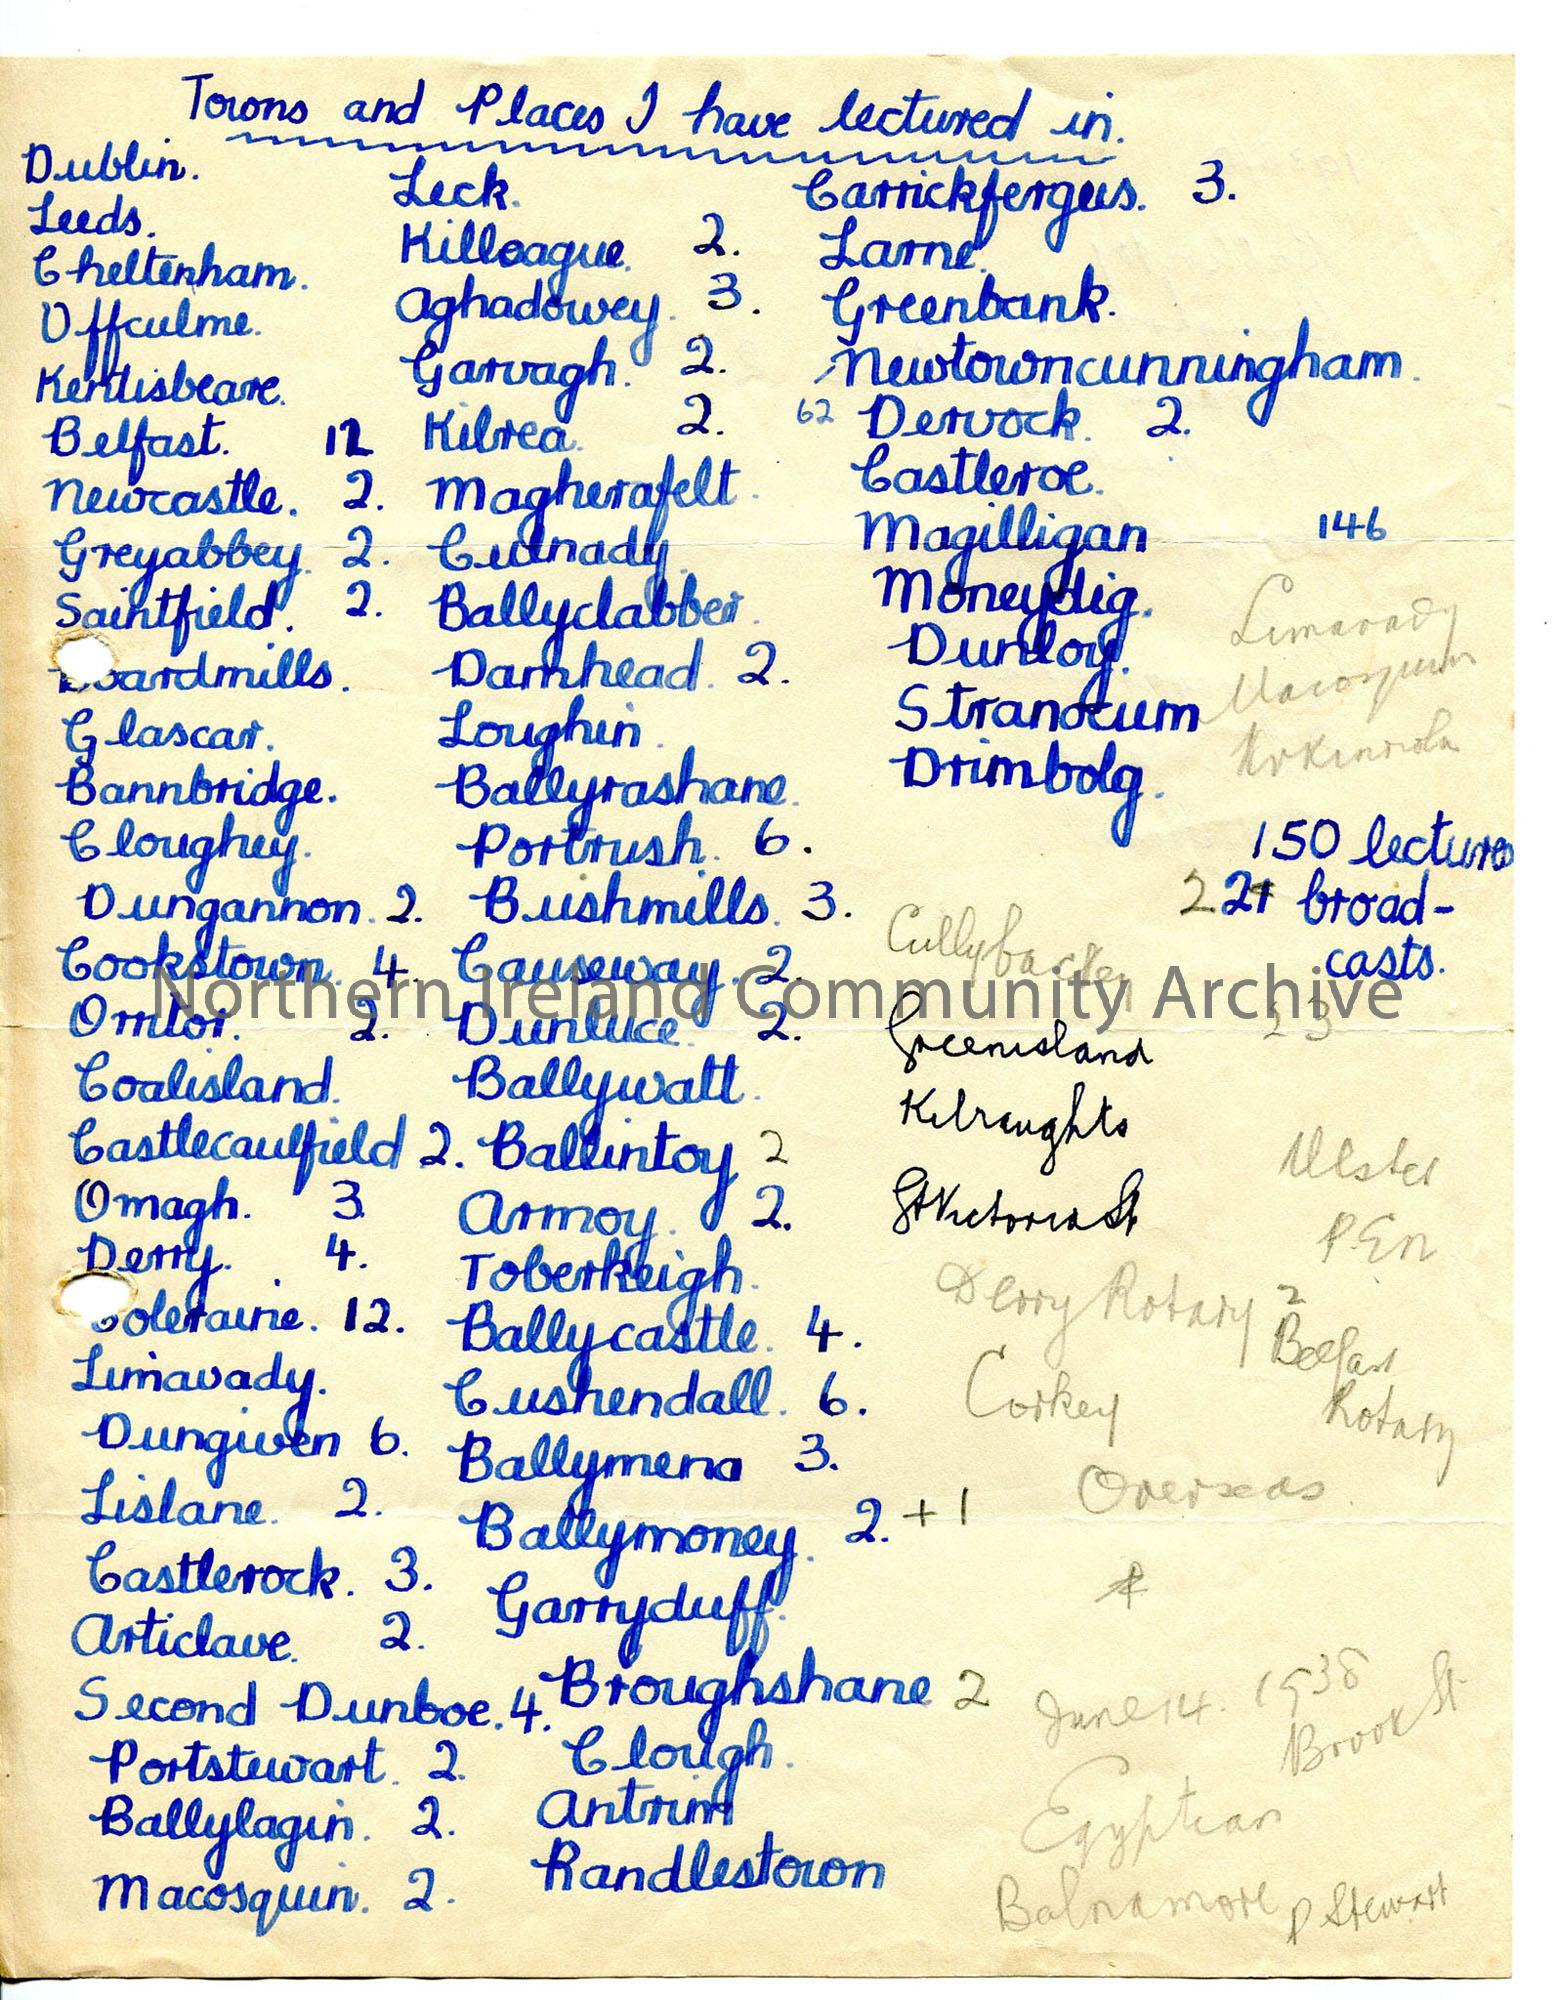 Towns and Places I have lectured in.
Dublin.
Leeds.
Cheltenham.
Uffculme.
Kentisbeare.
Belfast. 12
Newcastle. 2.
Greyabbey. 2.
Saintfield. 2.
Boardmills.
Glascar.
Bannbridge.
Cloughey.
Dungannon. 2.
Cookstown. 4.
Orritor. 2.
Coalisland.
Castlecaulfield 2.
Omagh. 3
Derry. 4.
Coleraine. 12.
Limavady.
Dungiven 6.
Lislane. 2.
Castlerock. 3.
Articlave. 2.
Second Dunboe. 4.
Portstewart. 2.
Ballylagin. 2.
Macosquin. 2.
Leck.
Killeague. 2.
Aghadowey. 3.
Garvagh. 2.
Kilrea. 2.
Magherafelt.
Culnady.
Ballyclabber.
Damhead. 2.
Loughin.
Ballyrashane.
Portrush. 6.
Bushmills. 3.
Causeway. 2.
Dunluce. 2.
Ballywatt.
Ballintoy 2
Armoy. 2.
Toberkeigh.
Ballycastle. 4.
Cushendall. 6.
Ballymena 3.
Ballymoney. 2. + 1
Garryduff.
Broughshane 2
Clough.
Antrim
Randlestown
Carrickfergus. 3.
Larne.
Greenbank.
Newtowncunningham.
62 Dervock. 2.
Castleroe.
Magilligan 146
Moneydig.
Dunloy.
Stranocum
Drimbolg.
Limavady
Macosquin
150 lectures
21 broad-
casts.
23
Cullybackey
Greenisland
Kilraughts
Gt Victoria St
Ulster
P.E.n
Derry Rotary 2
Belfast
Rotary
Corkey
Overseas
June 14. 1938
Brook St
Egyptian
Balnamore P Stewart
Northern Ireland Community Archive